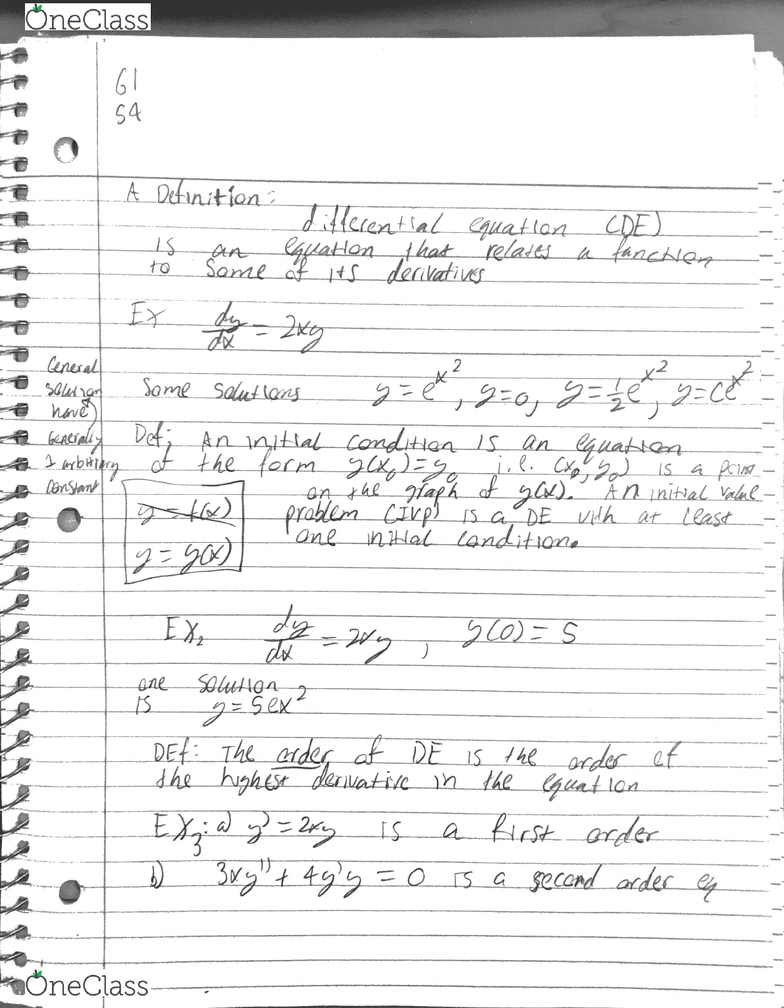 OneClass
61
54
A Definition:
differential equation (DE)
is an equation that relates a function
to some of its derivatives
Ex dy/dx = 2xy
General
solution
have
Generally
1 arbitrary
constant
Some solutions y = e^x², y=0, y=½e^x², y=Ce^x²
Def; An initial condition is an equation
of the form y(x₀)=y₀ i.e. (x₀, y₀) is a point
on the graph of y(x). An initial value
problem (IVP) is a DE with at least
one initial condition.
y = f(x)
y = y(x)
EX₂ dy/dx = 2xy, y(0) = 5
one solution
is y = 5ex²
DEf: The order of DE is the order of
the highest derivative in the equation
EX₃: a) y' = 2xy is a first order
b) 3xy'' + 4y'y = 0 is a second order eq
OneClass